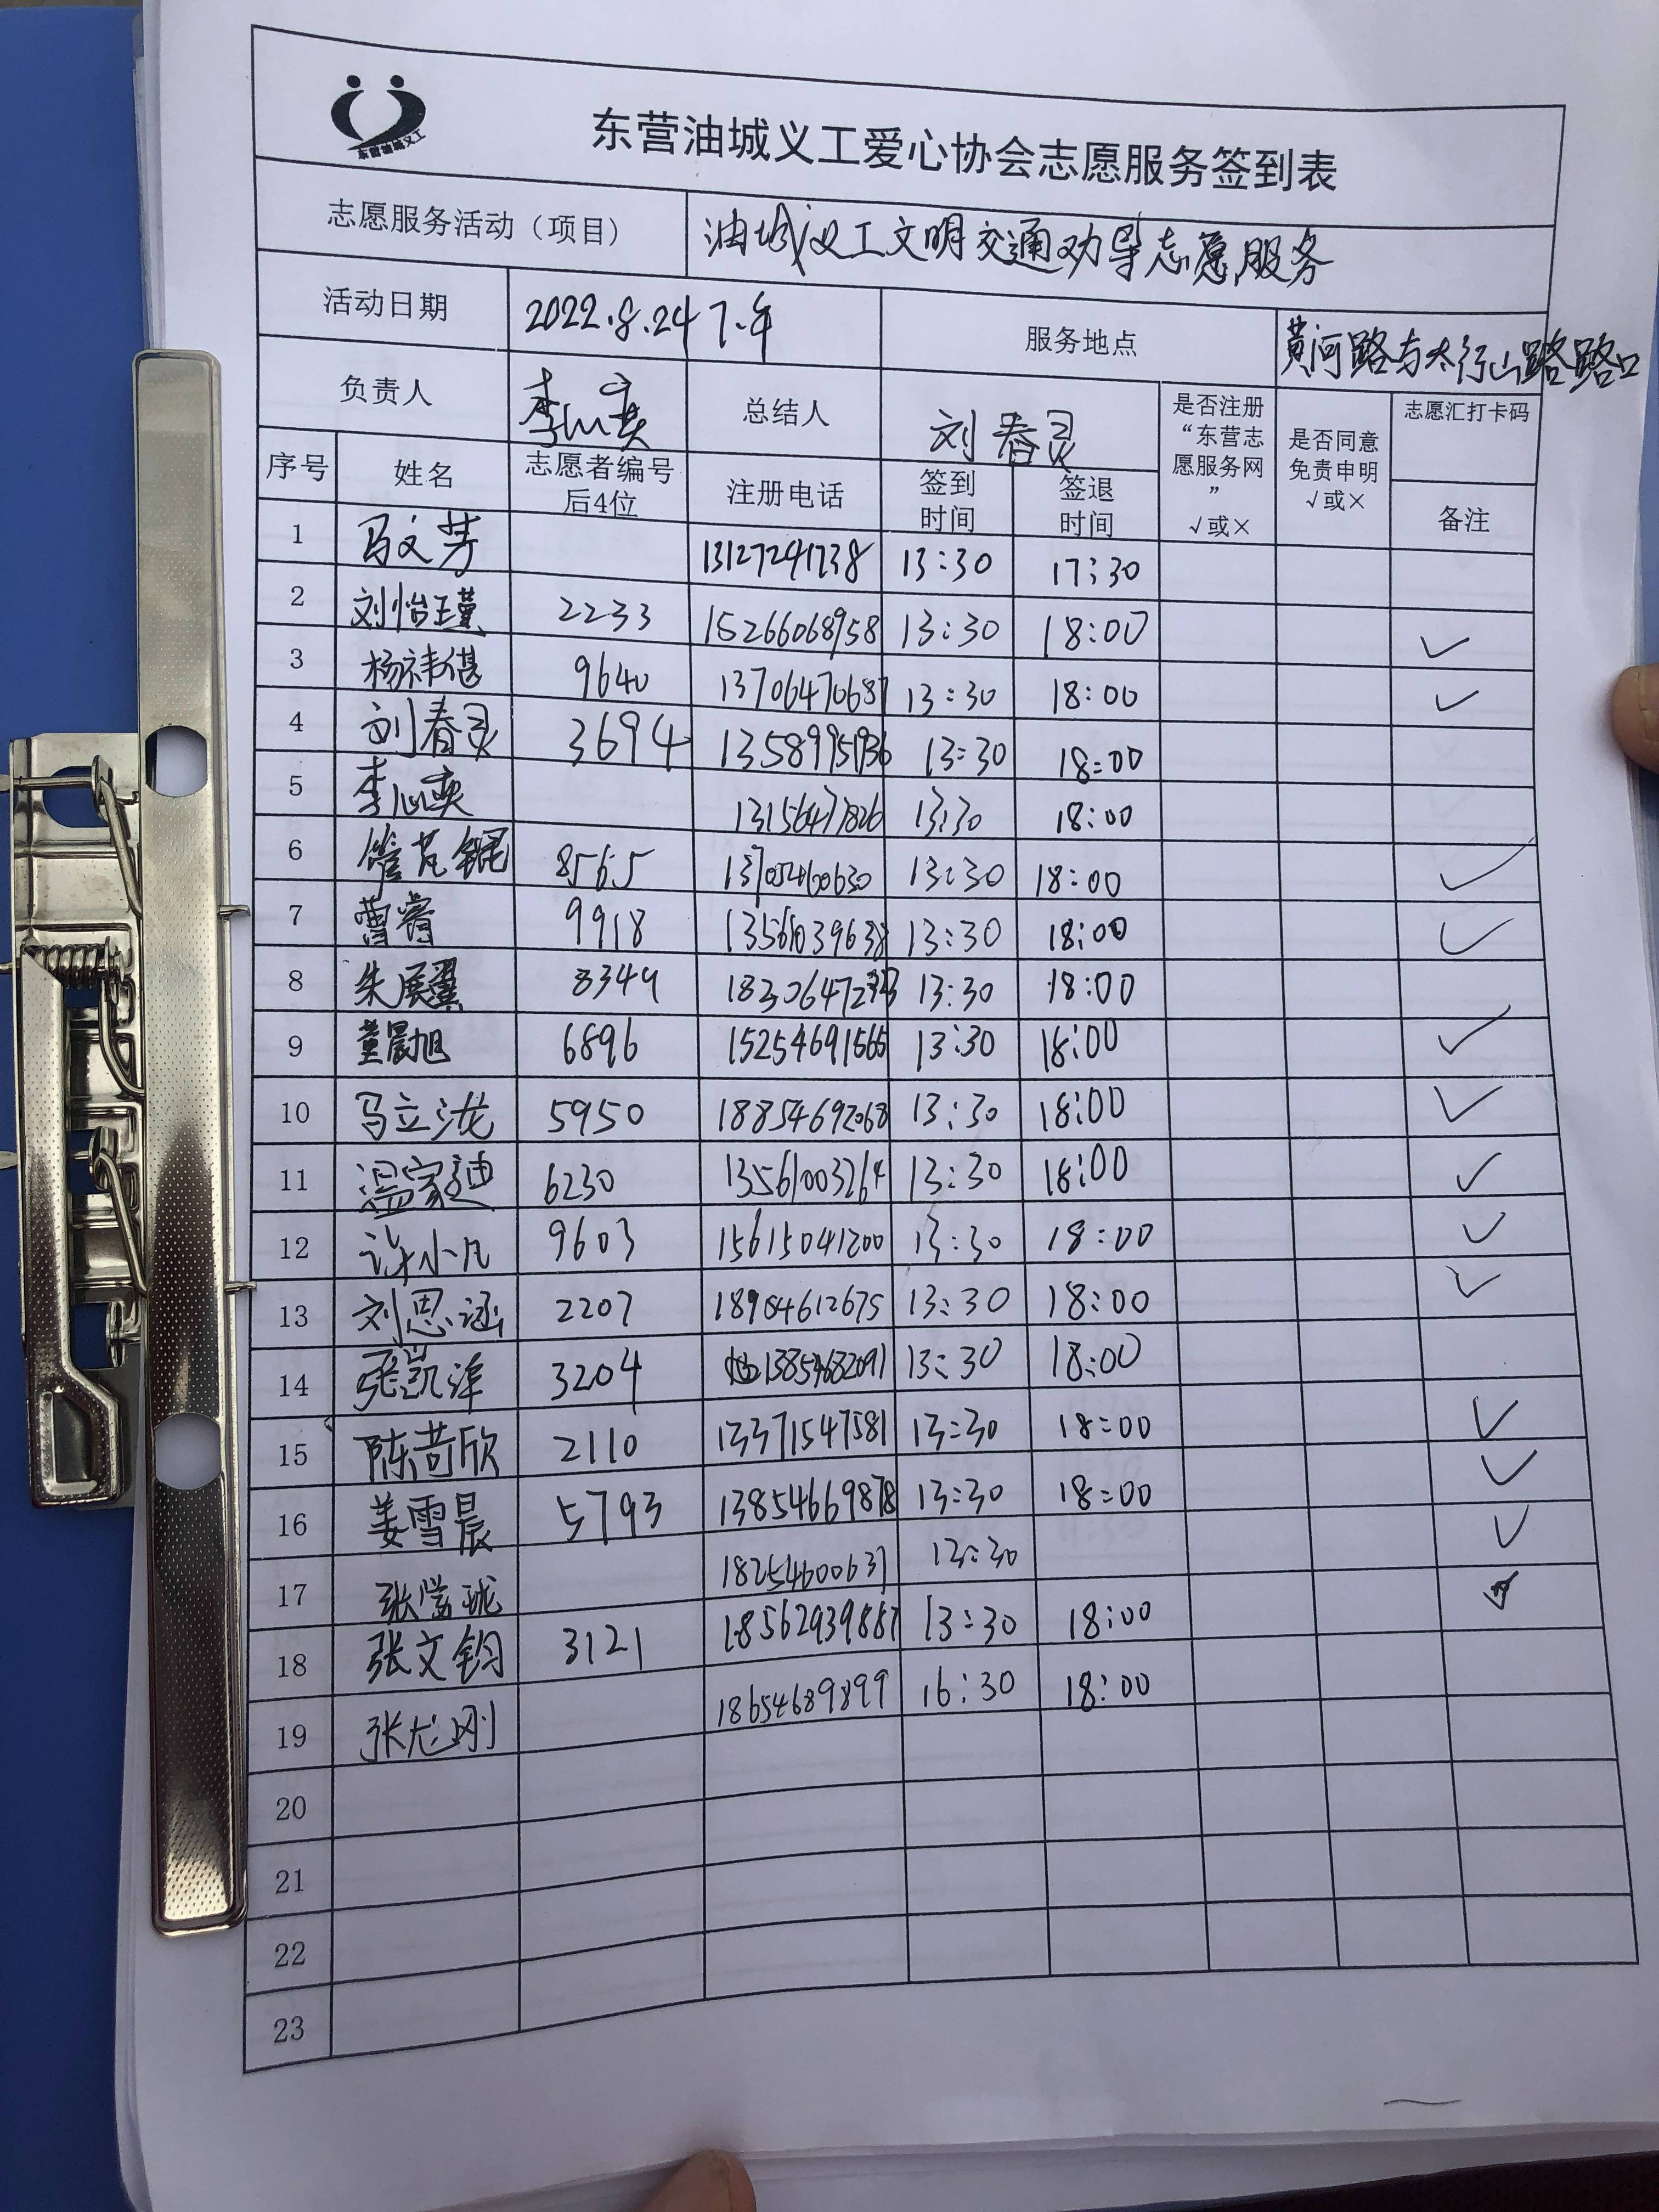 东营油城义工
东营油城义工爱心协会志愿服务签到表
志愿服务活动（项目） 油城义工文明交通劝导志愿服务
活动日期 2022.8.24下午 服务地点 黄河路与太行山路路口
负责人 李心奕 总结人 刘春灵 是否注册“东营志愿服务网” √或× 是否同意免责申明 √或× 志愿汇打卡码
序号 姓名 志愿者编号后4位 注册电话 签到时间 签退时间 备注
1 马文芳 13127241738 13:30 17:30
2 刘怡瑾 2233 15266068958 13:30 18:00 ✓
3 杨祎偡 9640 13706470687 13:30 18:00 ✓
4 刘春灵 3694 13589951936 13:30 18:00
5 李心奕 13156477826 13:30 18:00
6 8565 13705460630 13:30 18:00 ✓
7 曹睿 9918 13561039638 13:30 18:00 ✓
8 朱展翼 8349 13:30 18:00
9 董晨旭 6896 15254691565 13:30 18:00 ✓
10 马立泷 5950 18854692068 13:30 18:00 ✓
11 温家迪 6230 13561003264 13:30 18:00 ✓
12 许小凡 9603 15615041200 13:30 18:00 ✓
13 刘思涵 2207 18904612675 13:30 18:00 ✓
14 张凯泽 3204 13854682091 13:30 18:00
15 陈苛欣 2110 13371547581 13:30 18:00 ✓
16 姜雪晨 5793 13854669878 13:30 18:00 ✓
17 张馨珑 18254600637 13:30 ✓
18 张文钧 3121 18562939887 13:30 18:00 ✓
19 张龙刚 18654689899 16:30 18:00
20
21
22
23